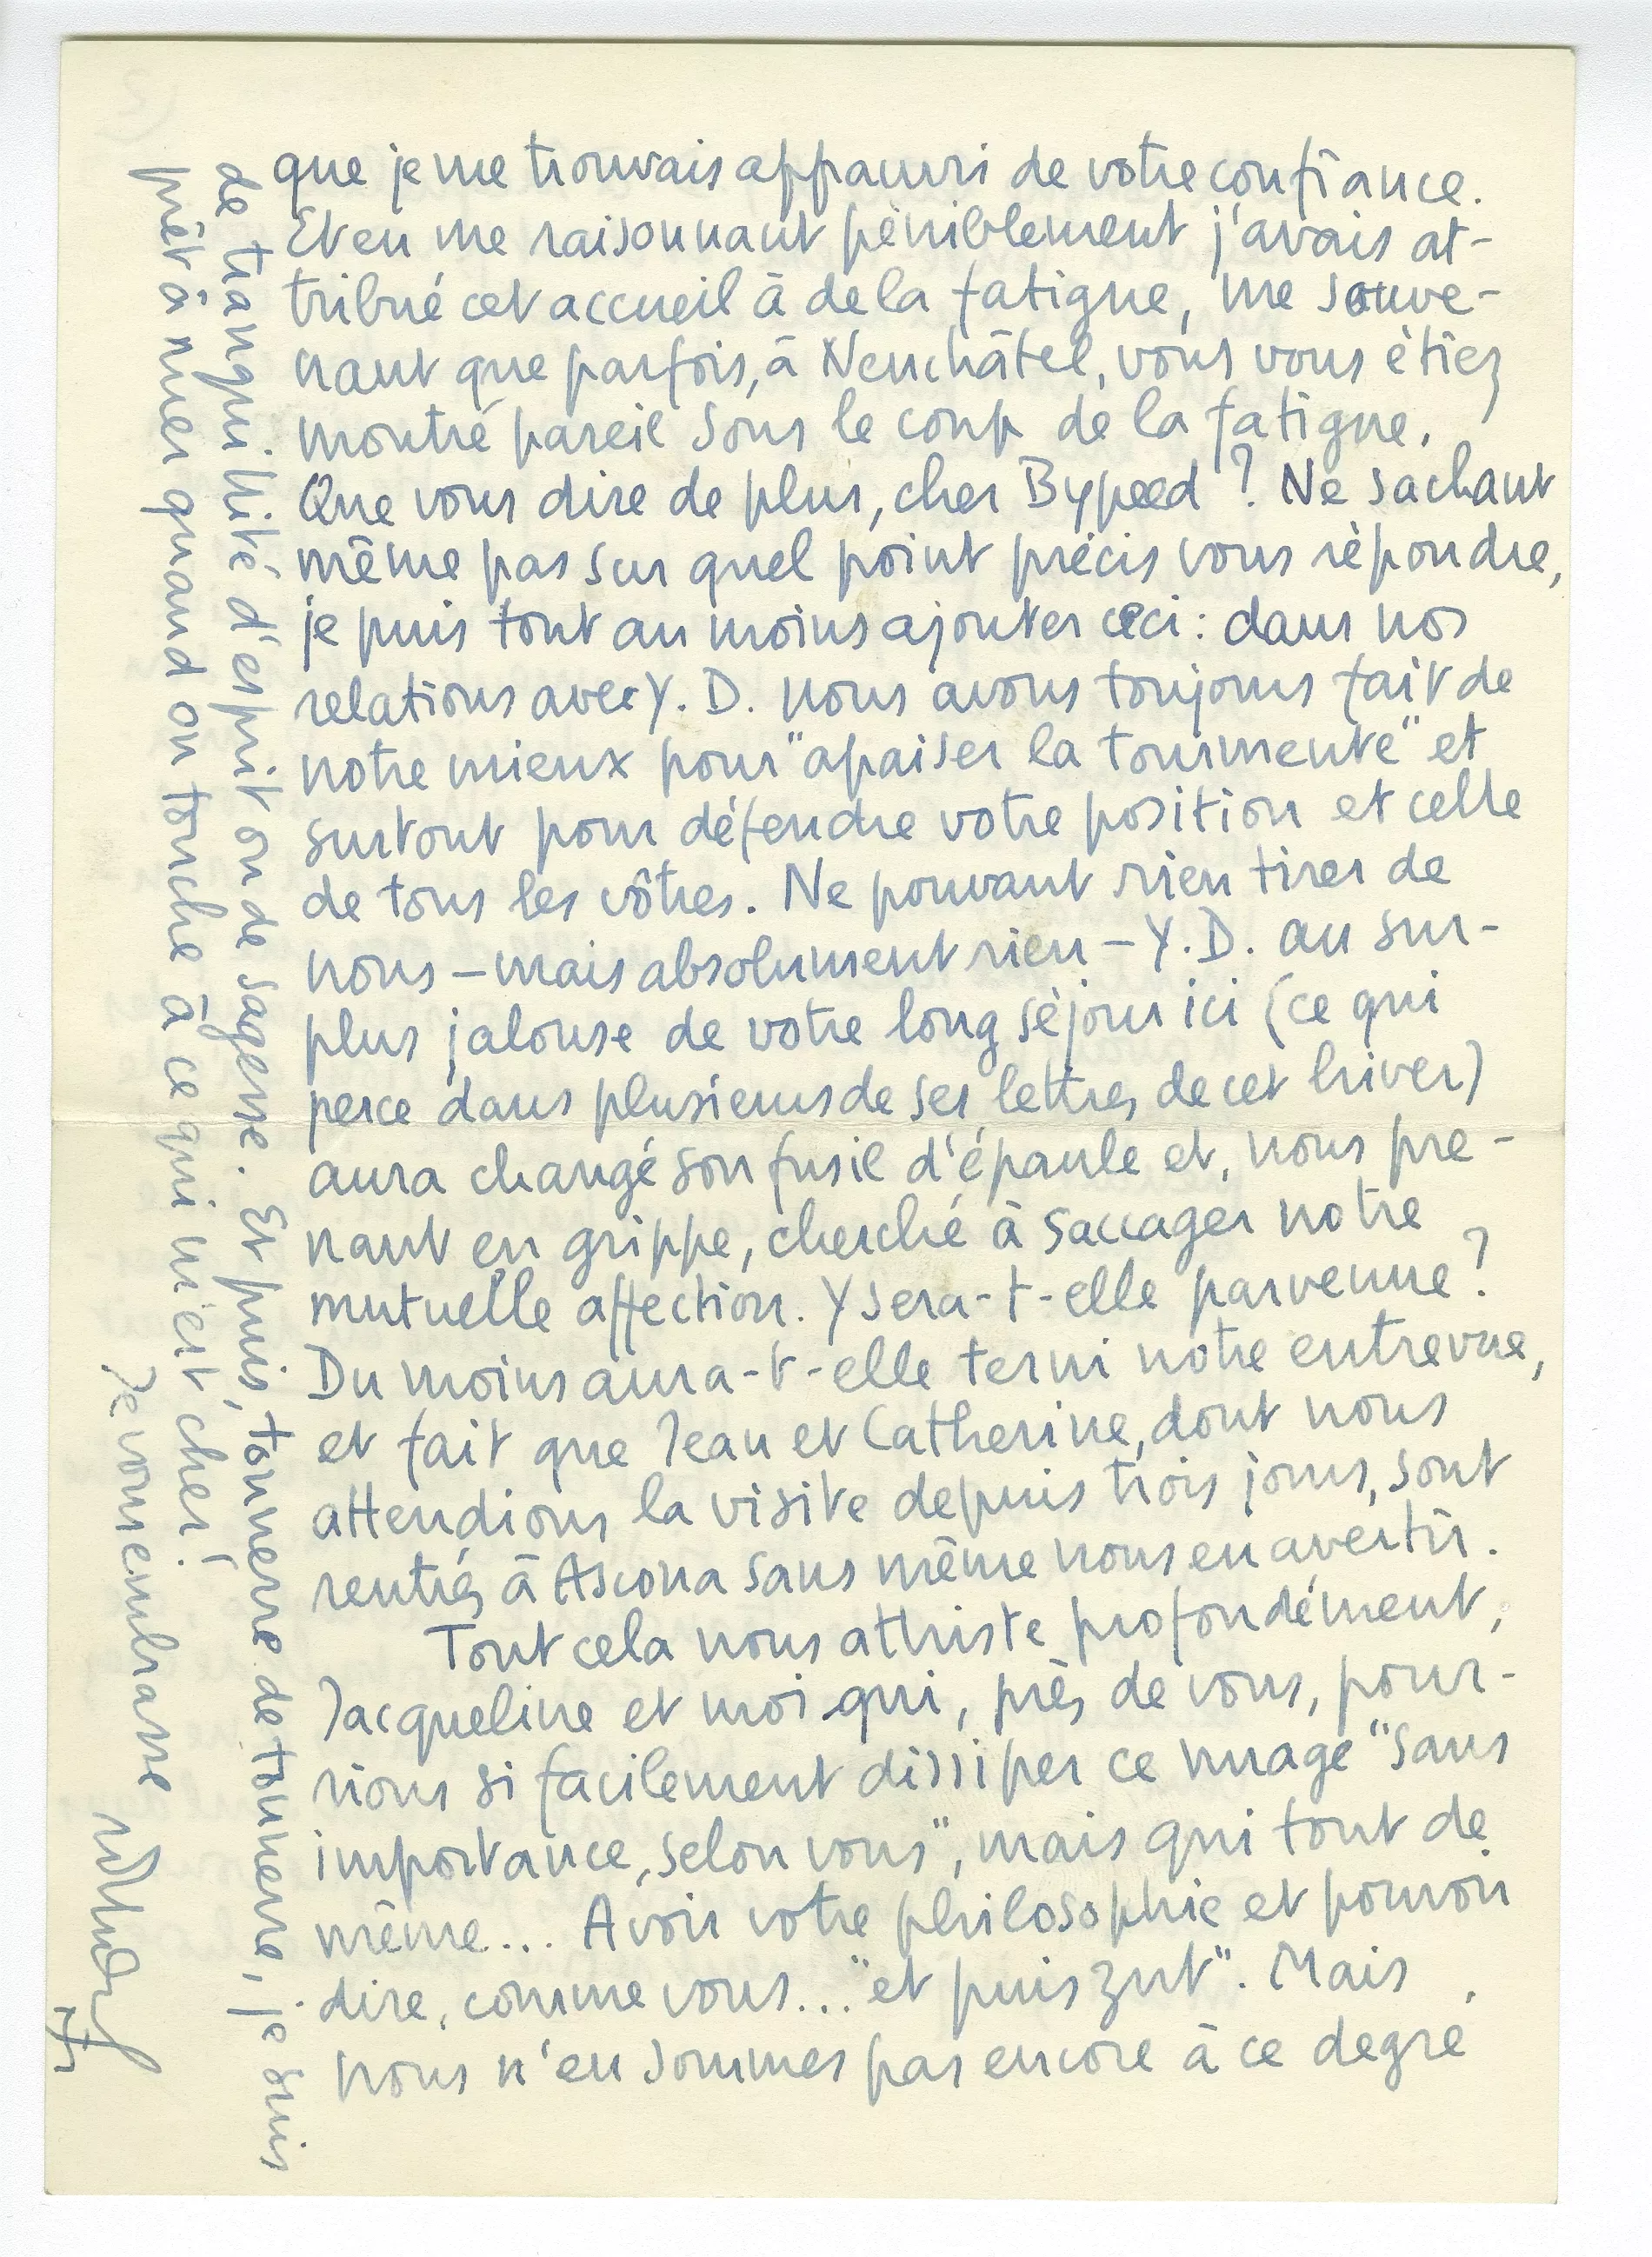 que je me trouvais appauvri de votre confiance.
Et en me raisonnant péniblement j'avais at-
tribué cet accueil à de la fatigue, me souve-
nant que parfois, à Neuchâtel, vous vous étiez
montré pareil sous le coup de la fatigue.
Que vous dire de plus, cher Bypeed ? Ne sachant
même pas sur quel point précis vous répondre,
je puis tout au moins ajouter ceci : dans nos
relations avec Y. D. nous avons toujours fait de
notre mieux pour "apaiser la tourmente" et
surtout pour défendre votre position et celle
de tous les vôtres. Ne pouvant rien tirer de
nous – mais absolument rien – Y. D. au sur-
plus jalouse de votre long séjour ici (ce qui
perce dans plusieurs de ses lettres de cet hiver)
aura changé son fusil d'épaule et, nous pre-
nant en grippe, cherché à saccager notre
mutuelle affection. Y sera-t-elle parvenue ?
Du moins aura-t-elle terni notre entrevue,
et fait que Jean et Catherine, dont nous
attendions la visite depuis trois jours, sont
rentrés à Ascona sans même nous en avertir.
Tout cela nous attriste profondément,
Jacqueline et moi qui, près de vous, pour-
rions si facilement dissiper ce nuage "sans
importance, selon vous", mais qui tout de
même... Avoir votre philosophie et pouvoir
dire, comme vous... "et puis zut". Mais
nous n'en sommes pas encore à ce degré
de tranquillité d'esprit ou de sagesse. Et puis, tonnerre de tonnerre, je suis
prêt à tuer quand on touche à ce qui m'est cher !
Je vous embrasse